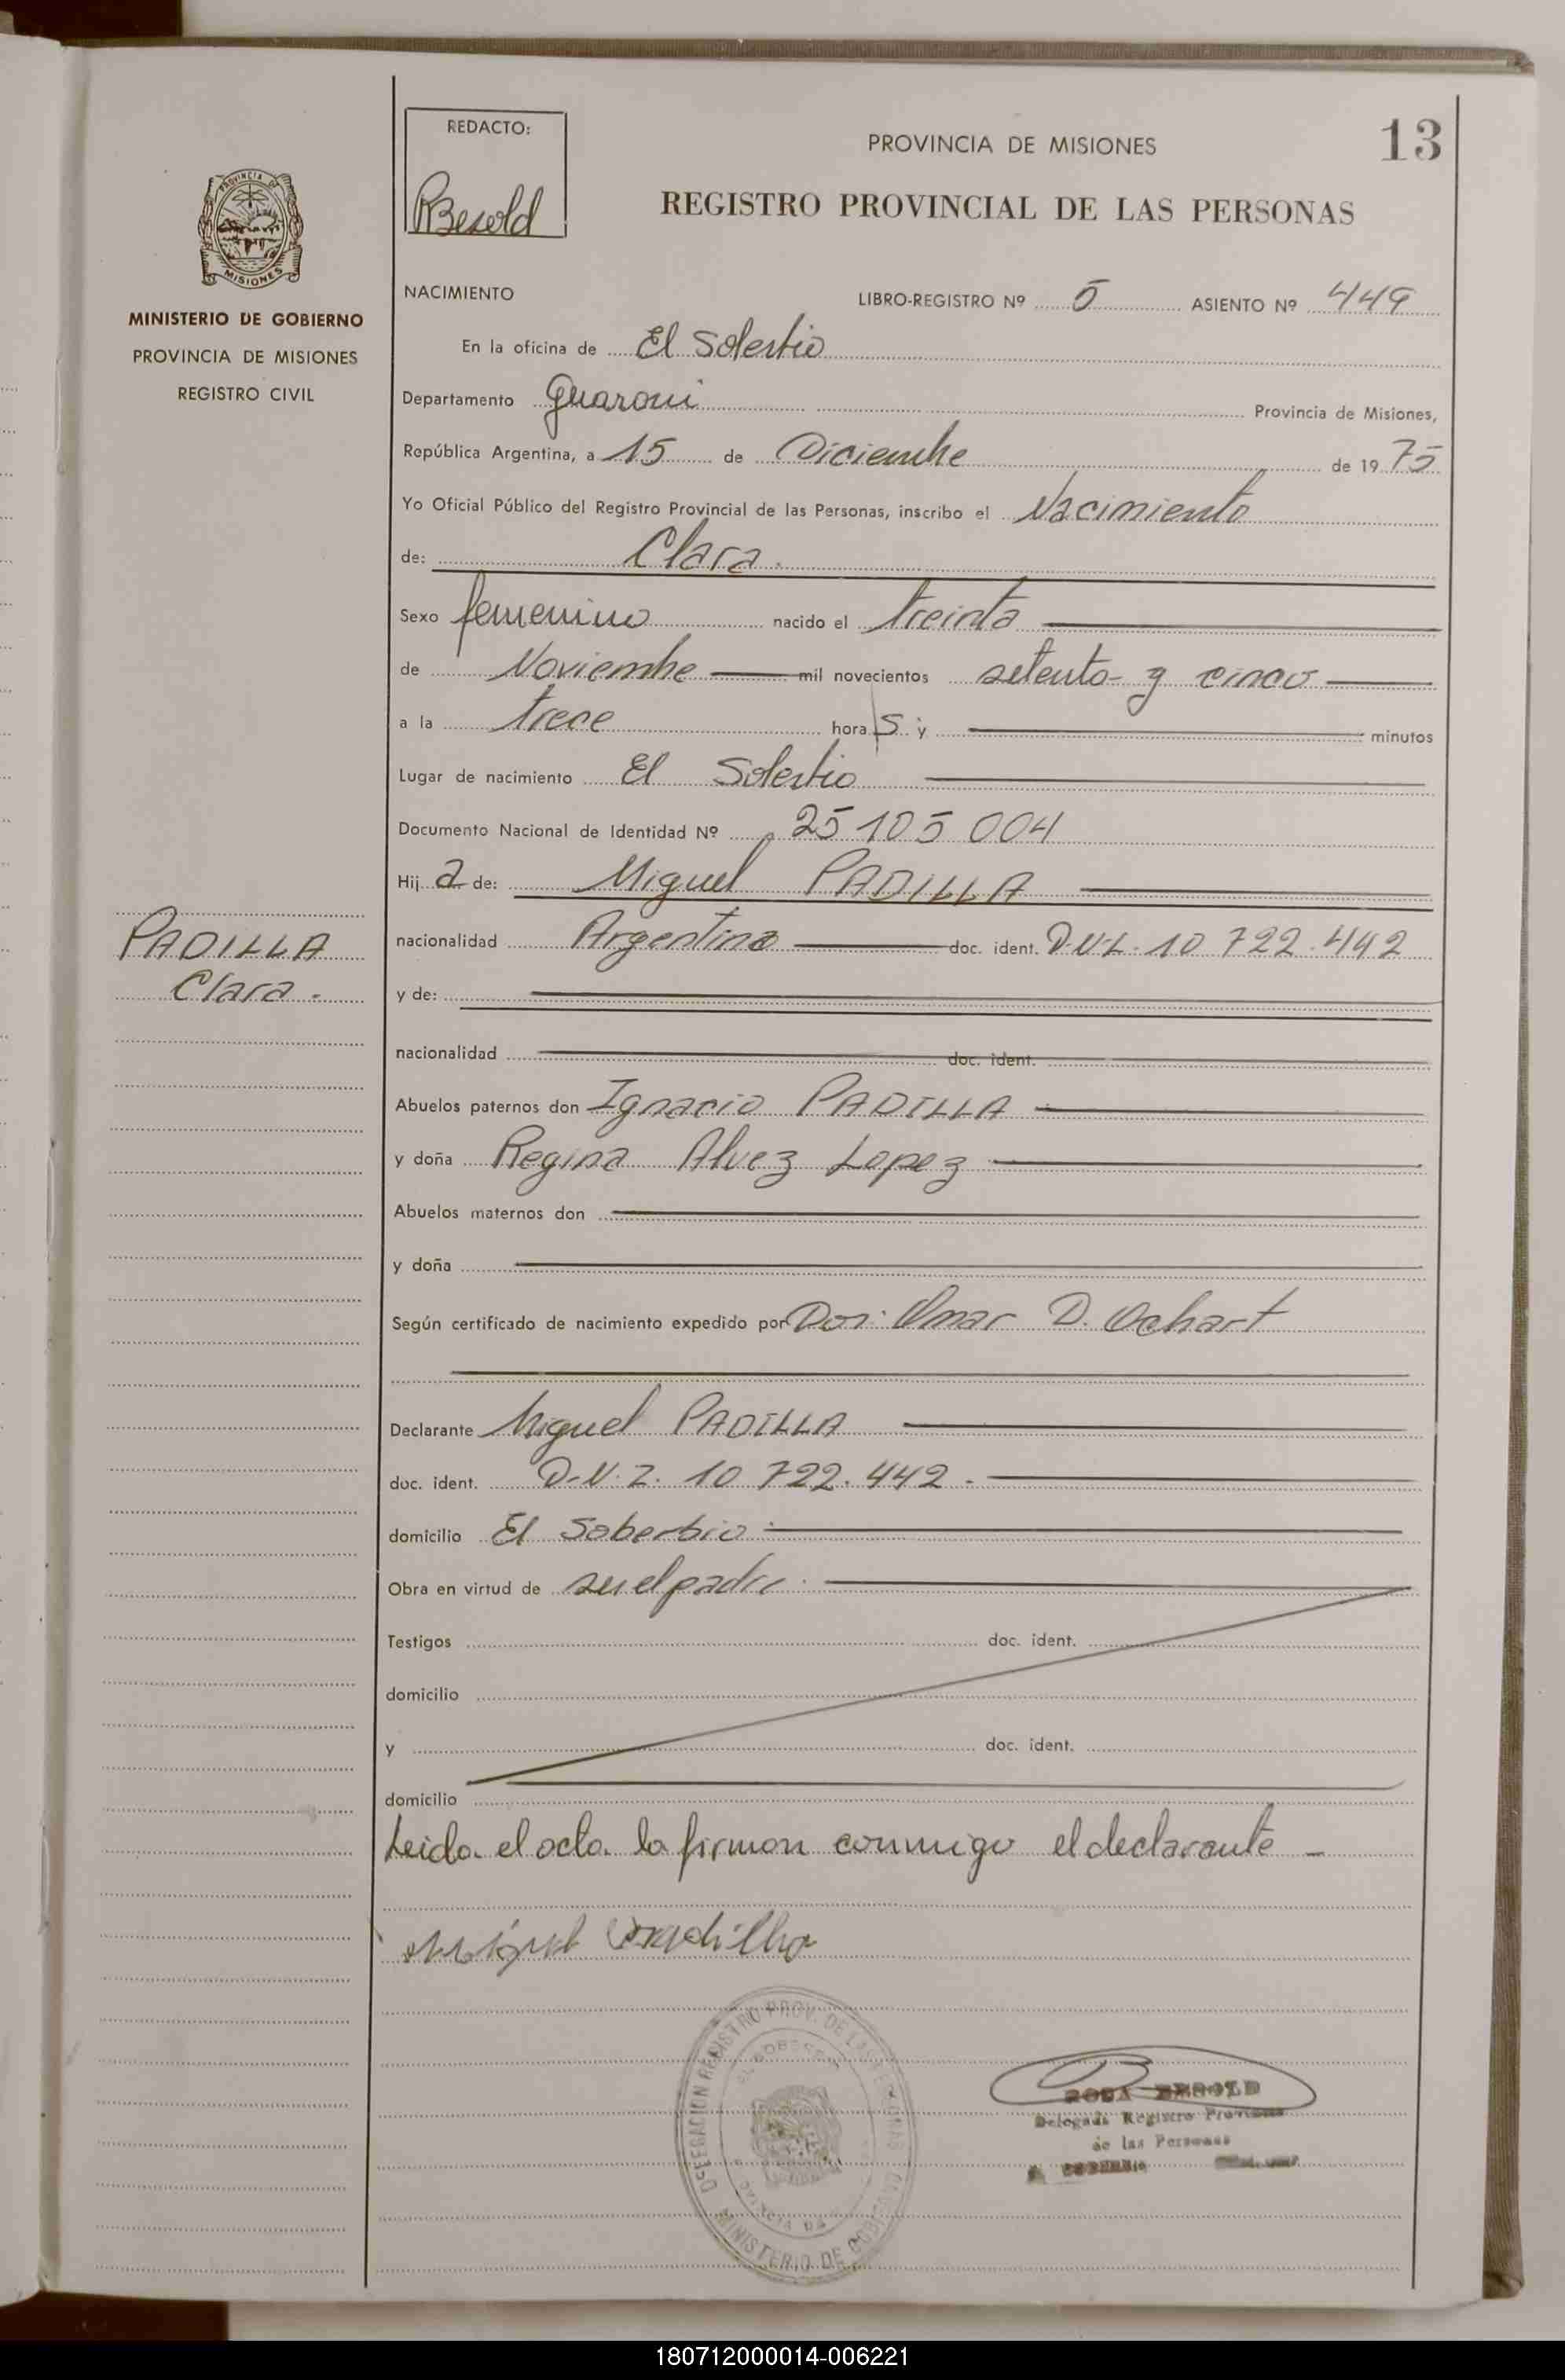 REDACTO:
Besold
PROVINCIA DE MISIONES
13
REGISTRO PROVINCIAL DE LAS PERSONAS
PROVINCIA DE
MISIONES
MINISTERIO DE GOBIERNO
PROVINCIA DE MISIONES
REGISTRO CIVIL
NACIMIENTO
LIBRO-REGISTRO Nº 5 ASIENTO Nº 449
En la oficina de El Soberbio
Departamento Guarani Provincia de Misiones,
República Argentina, a 15 de Diciembre de 1975
Yo Oficial Público del Registro Provincial de las Personas, inscribo el Nacimiento
de: Clara.
Sexo femenino nacido el treinta
de Noviembre mil novecientos setenta y cinco
a la trece horas y minutos
Lugar de nacimiento El Soberbio
Documento Nacional de Identidad Nº 25 105 004
Hija de: Miguel PADILLA
nacionalidad Argentina doc. ident. D.N.I. 10 722.442
PADILLA
Clara.
y de:
nacionalidad doc. ident.
Abuelos paternos don Ignacio PADILLA
y doña Regina Alvez Lopez
Abuelos maternos don
y doña
Según certificado de nacimiento expedido por Omar D. Ochart
Declarante Miguel PADILLA
doc. ident. D.N.I. 10 722.442.
domicilio El Soberbio
Obra en virtud de ser el padre.
Testigos doc. ident.
domicilio
y doc. ident.
domicilio
Leida el acta la firman conmigo el declarante
Miguel Padilha
DELEGACION REGISTRO PROV. DE LAS PERSONAS
MINISTERIO DE GOBIERNO
ROSA BESOLD
Delegada Registro Provincial
de las Personas
180712000014-006221